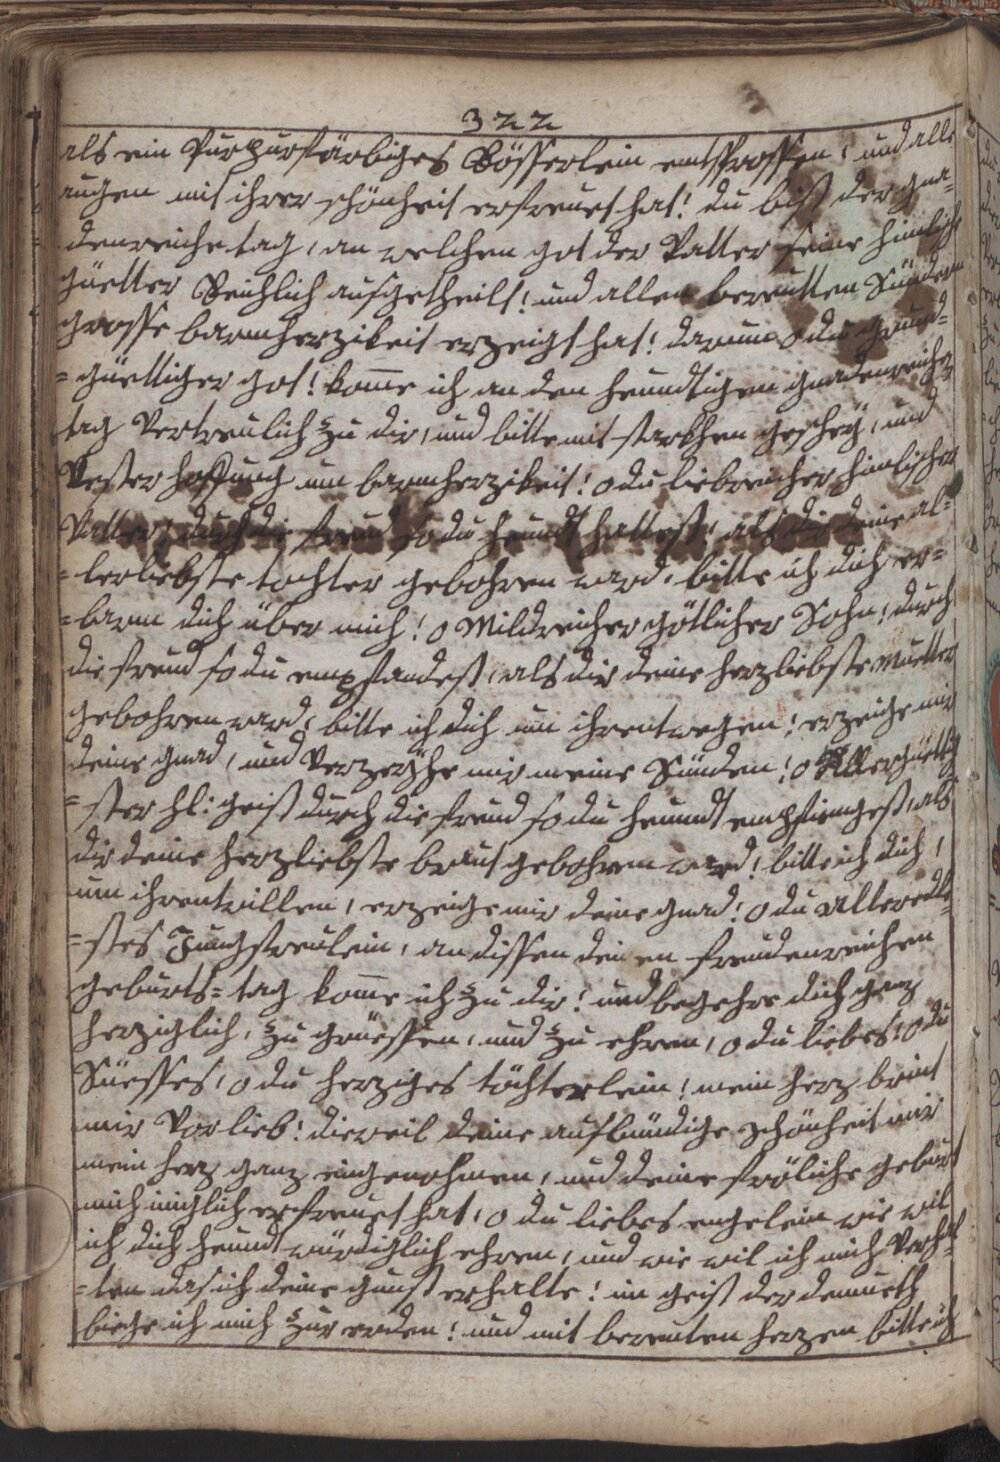 322
als ein Purpurfärbiges Rösserlein entsprossen: und alle
augen mit ihrer schönheit erfreuet hat! du bist der gna-
denreiche tag, an welchen got der Vatter seine himlische
güetter Reichlich ausgetheilt! und allen bereutten Sündern
grosse barmherzikeit erzeigt hat! darum o du grund-
=güettiger got! kome ich an den heundtigen gnadenreichen
tag Vertreulich zu dir, und bitte mit starkhen geschrÿ, und
Vester hoffnung um barmherzikeit! o du liebreicher himlischer
Vatter, durch die freud so du heundt hattest: als dir deine al=
=lerliebste tochter gebohren ward, bitte ich dich er=
=barm dich über mich! o Mildreicher götlicher Sohn, durch
die freud so du empfandest, als dir deine herzliebste Muetter
gebohren ward, bitte ich dich um ihrentwegen! erzeige mir
deine gnad, und Verzeÿhe mir meine Sünden! o Allergüettig
=ster hl: geist durch die freud so du heundt empfiengest, als
dir deine herzliebste braut gebohren ward! bitte ich dich,
um ihrentwillen, erzeige mir deine gnad! o du alleredle=
=stes Jungfreulein, an dissen deinen freudenreichen
geburts=tag kome ich zu dir! und begehre dich ganz
herziglich, zu grüessen, und zu ehren, o du liebes! o du
Süesses, o du herziges töchterlein! mein herz brint
mir Vor lieb! dieweil deine ausbündige schönheit mir
mein herz ganz eingenohmen, und deine fröliche geburt
mich iniglich erfreuet hat, o du liebes engelein wie wil
ich dich heundt würdiglich ehren, und wie wil ich mich Verhal
=ten das ich deine gunst erhalte! im geist der demueth
biege ich mich zur erden! und mit bereuten herzen bitte ich